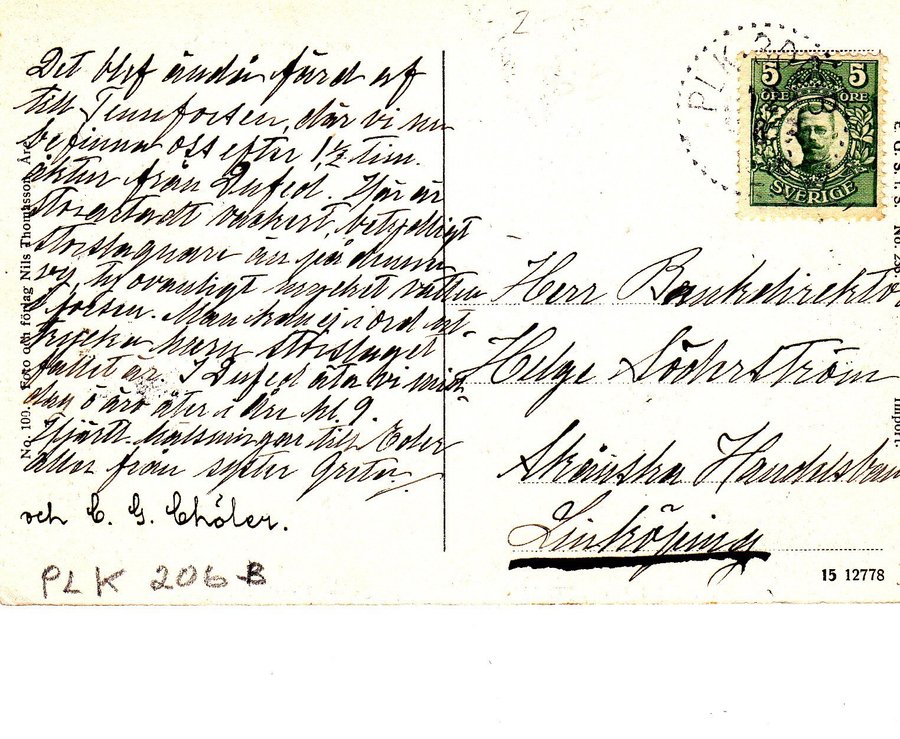 Det blef ändå färd af
till Tennforsen, där vi nu
befinna oss efter 1½ tim.
åktur från Dufed. Här är
storartadt vackert, betydligt
storslagnare än på denna
vy, ty ovanligt mycket vatten
i forsen. Man kan ej i ord ut-
trycka huru storslaget
fallet är. I Dufed äta vi mid-
dag o äro åter i Åre kl. 9.
Hjärtl. hälsningar till Eder
alla från syster Greta.
och C. G. Chöler.
PLK 206 B
No. 109. Foto och förlag Nils Thomasson, Åre.
PLK
5 5
ÖRE ÖRE
SVERIGE
Herr Bankdirektö
Helge Söderström
Skånska Handelsban
Linköping
15 12778
Import.